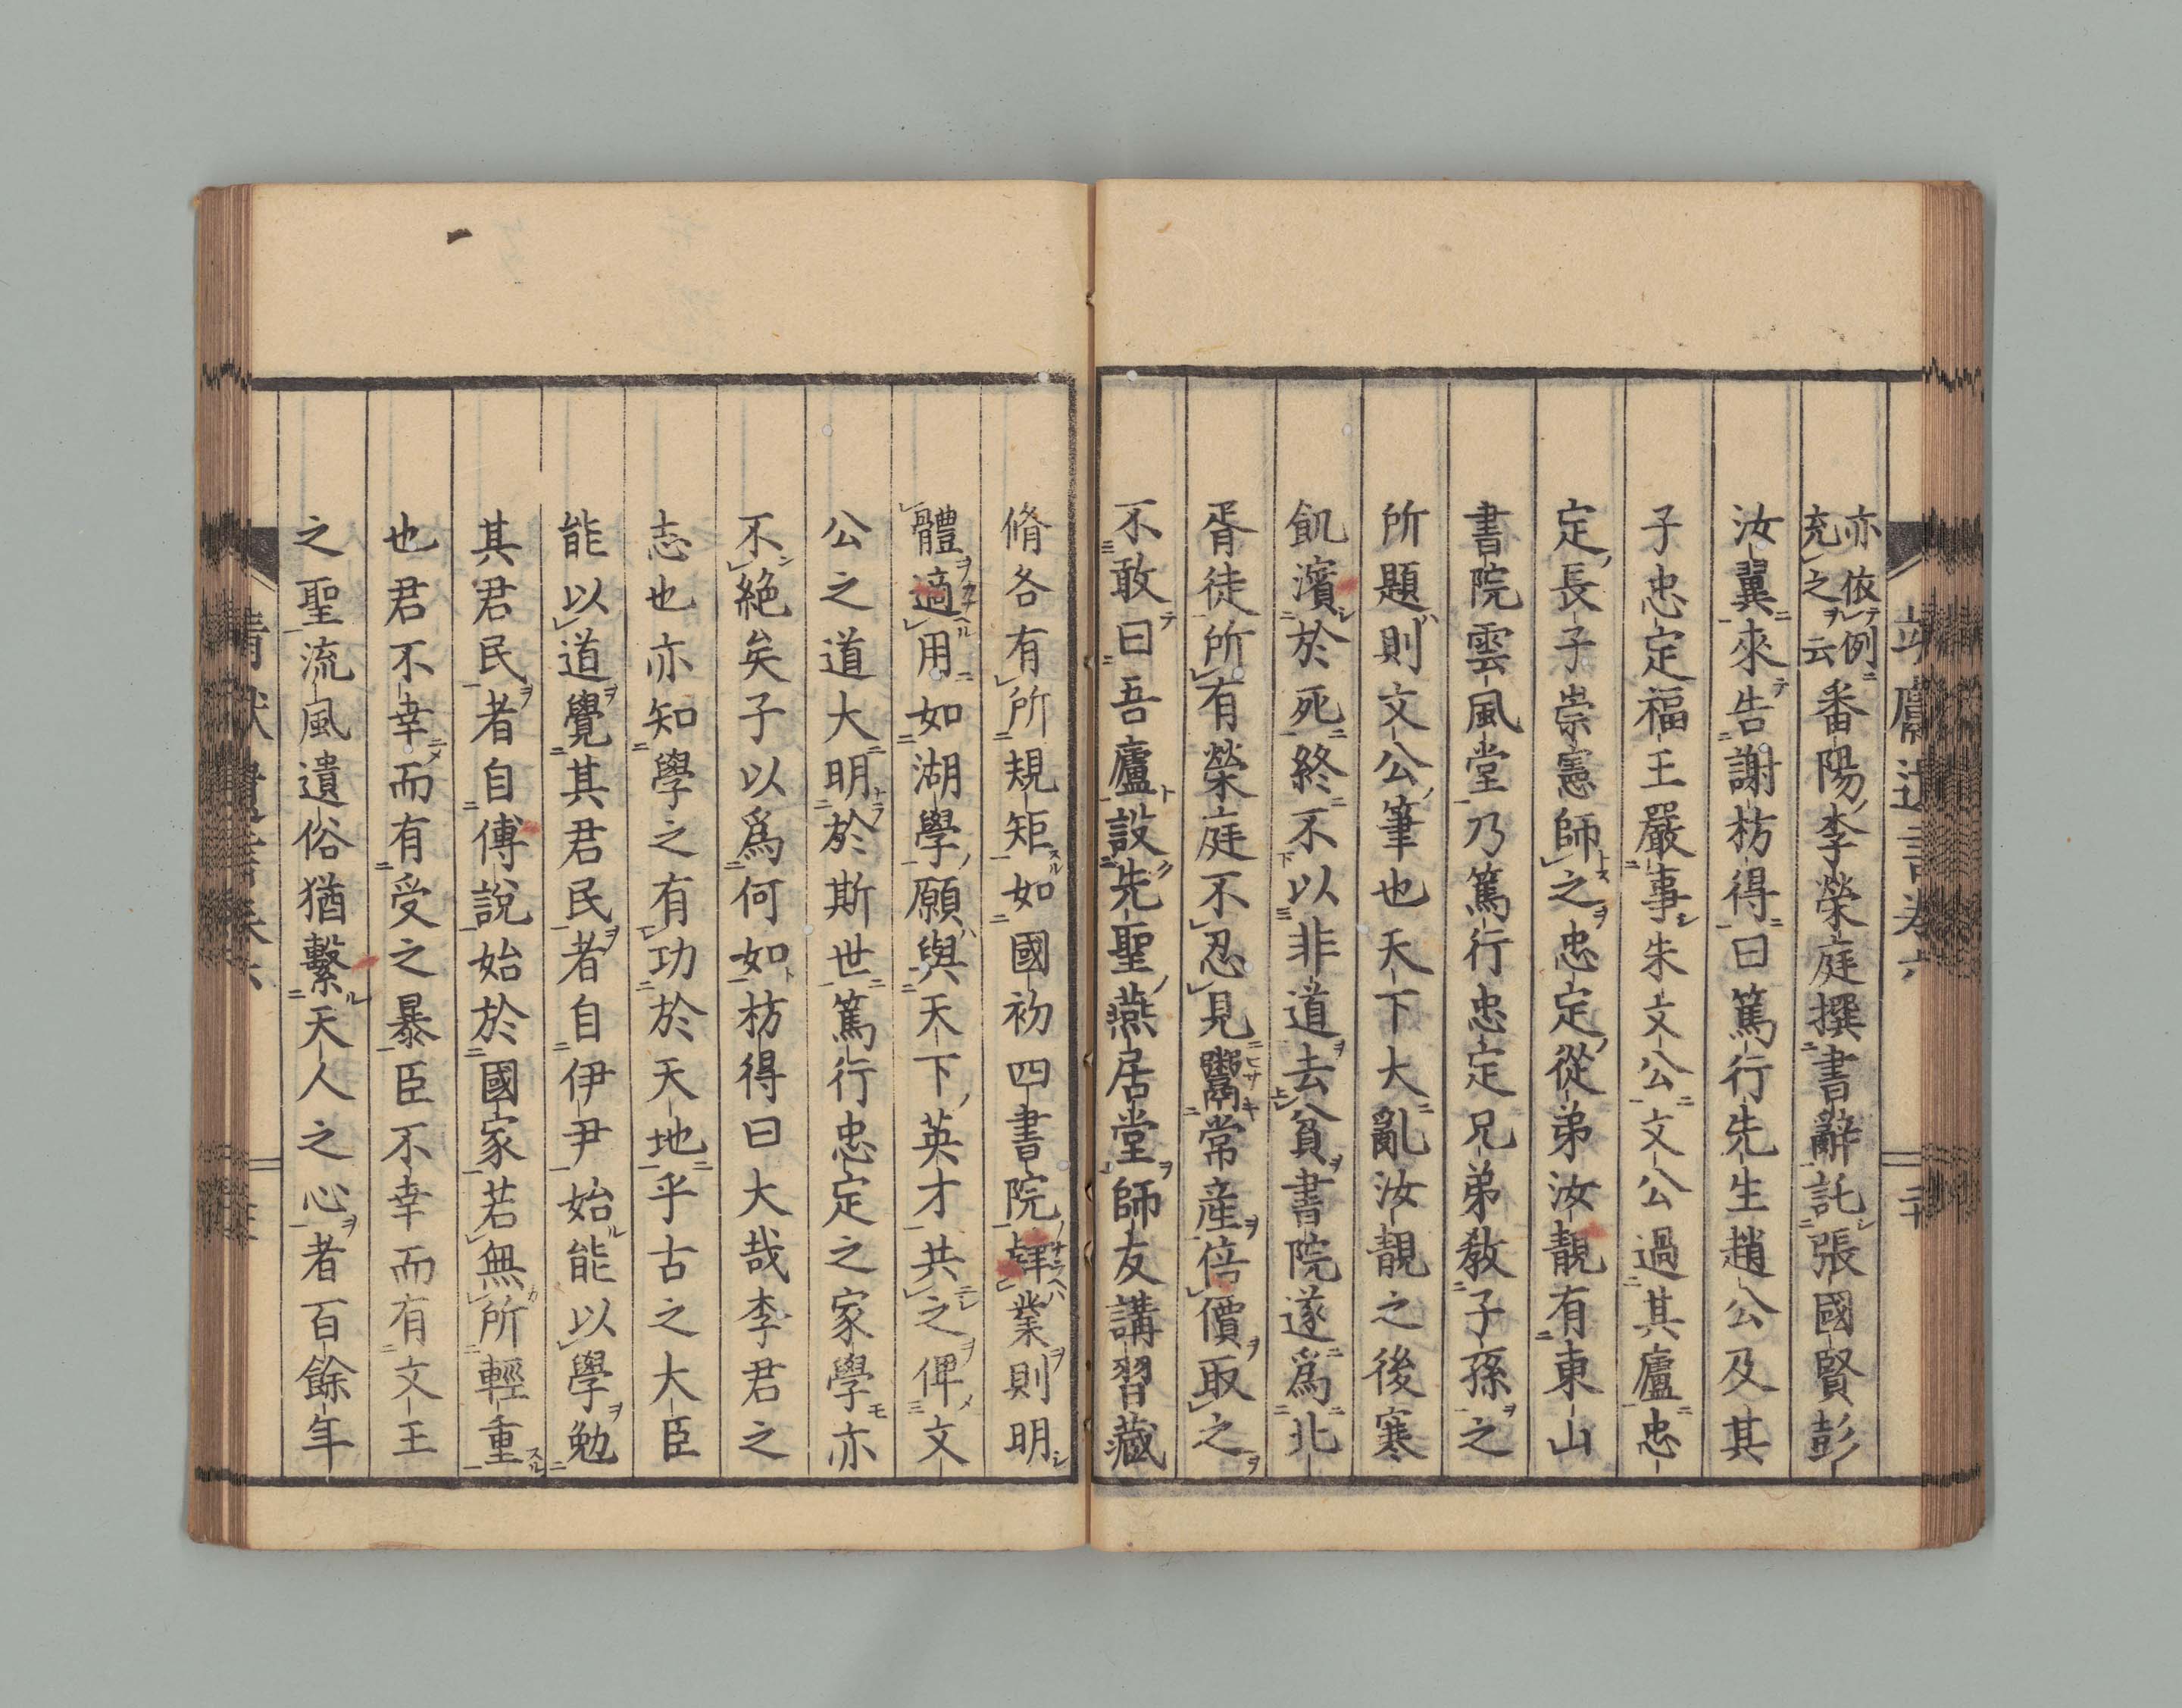 亦依例
充之云番陽李榮庭撰書辭託張國賢彭
汝翼來告謝枋得曰篤行先生趙公及其
子忠定福王嚴事朱文公文公過其廬忠
定長子崇憲師之忠定從弟汝靚有東山
書院雲風堂乃篤行忠定兄弟教子孫之
所題則文公筆也天下大亂汝靚之後寒
飢濱於死終不以非道去貧書院遂爲北
胥徒所有榮庭不忍見鬻常産倍價取之
不敢曰吾廬設先聖燕居堂師友講習藏
脩各有所規矩如國初四書院肄業則明
體適用如湖學願與天下英才共之俾文
公之道大明於斯世篤行忠定之家學亦
不絶矣子以爲何如枋得曰大哉李君之
志也亦知學之有功於天地乎古之大臣
能以道覺其君民者自伊尹始能以學勉
其君民者自傅說始於國家若無所輕重
也君不幸而有受之暴臣不幸而有文王
之聖流風遺俗猶繫天人之心者百餘年